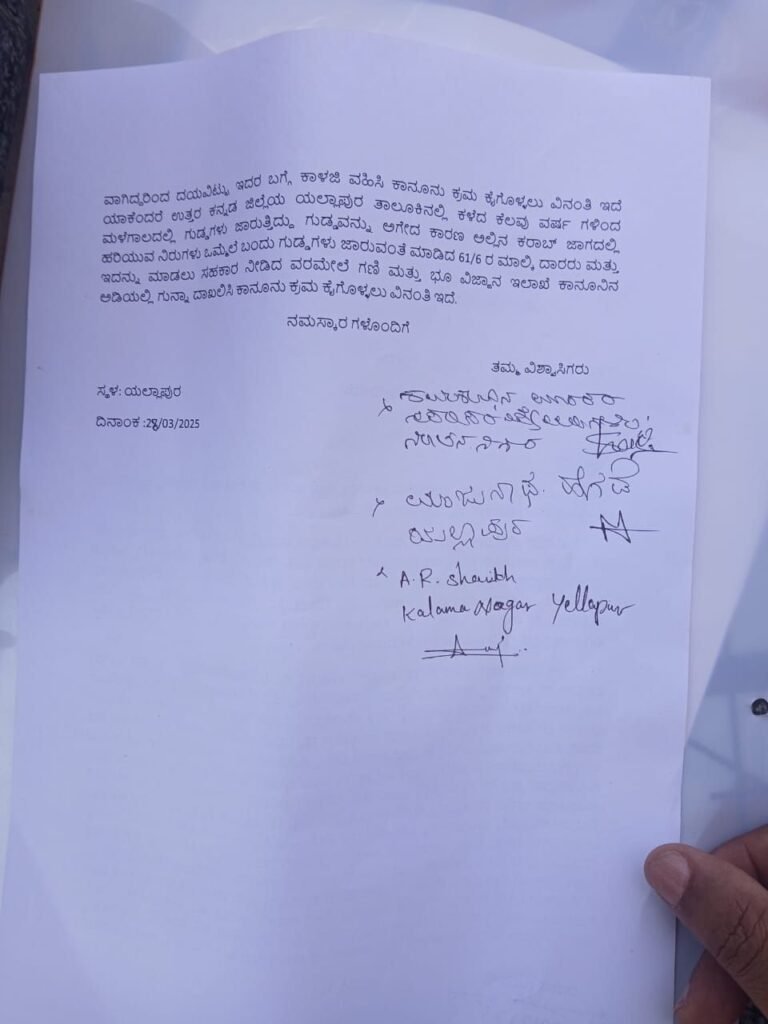 ವಾಗಿದ್ದರಿಂದ ದಯವಿಟ್ಟು ಇದರ ಬಗ್ಗೆ ಕಾಳಜಿ ವಹಿಸಿ ಕಾನೂನು ಕ್ರಮ ಕೈಗೊಳ್ಳಲು ವಿನಂತಿ ಇದೆ
ಯಾಕೆಂದರೆ ಉತ್ತರ ಕನ್ನಡ ಜಿಲ್ಲೆಯ ಯಲ್ಲಾಪುರ ತಾಲೂಕಿನಲ್ಲಿ ಕಳೆದ ಕೆಲವು ವರ್ಷ ಗಳಿಂದ
ಮಳೆಗಾಲದಲ್ಲಿ ಗುಡ್ಡಗಳು ಜಾರುತ್ತಿದ್ದು ಗುಡ್ಡವನ್ನು ಅಗೇದ ಕಾರಣ ಅಲ್ಲಿನ ಕರಾಬ್ ಜಾಗದಲ್ಲಿ
ಹರಿಯುವ ನಿರುಗಳು ಒಮ್ಮೆಲೆ ಬಂದು ಗುಡ್ಡಗಳು ಜಾರುವಂತೆ ಮಾಡಿದ 61/6 ರ ಮಾಲ್ಕಿ ದಾರರು ಮತ್ತು
ಇದನ್ನು ಮಾಡಲು ಸಹಕಾರ ನೀಡಿದ ವರಮೇಲೆ ಗಣಿ ಮತ್ತು ಭೂ ವಿಜ್ಞಾನ ಇಲಾಖೆ ಕಾನೂನಿನ
ಅಡಿಯಲ್ಲಿ ಗುನ್ನಾ ದಾಖಲಿಸಿ ಕಾನೂನು ಕ್ರಮ ಕೈಗೊಳ್ಳಲು ವಿನಂತಿ ಇದೆ.
ನಮಸ್ಕಾರ ಗಳೊಂದಿಗೆ
ತಮ್ಮ ವಿಶ್ವಾಸಿಗರು
ಸ್ಥಳ: ಯಲ್ಲಾಪುರ
ದಿನಾಂಕ :28/03/2025
ಮಂಜುನಾಥ. ಹೆಗಡೆ
ಯಲ್ಲಾಪುರ
A.R. Shaikh
Kalama Nagar Yellapur